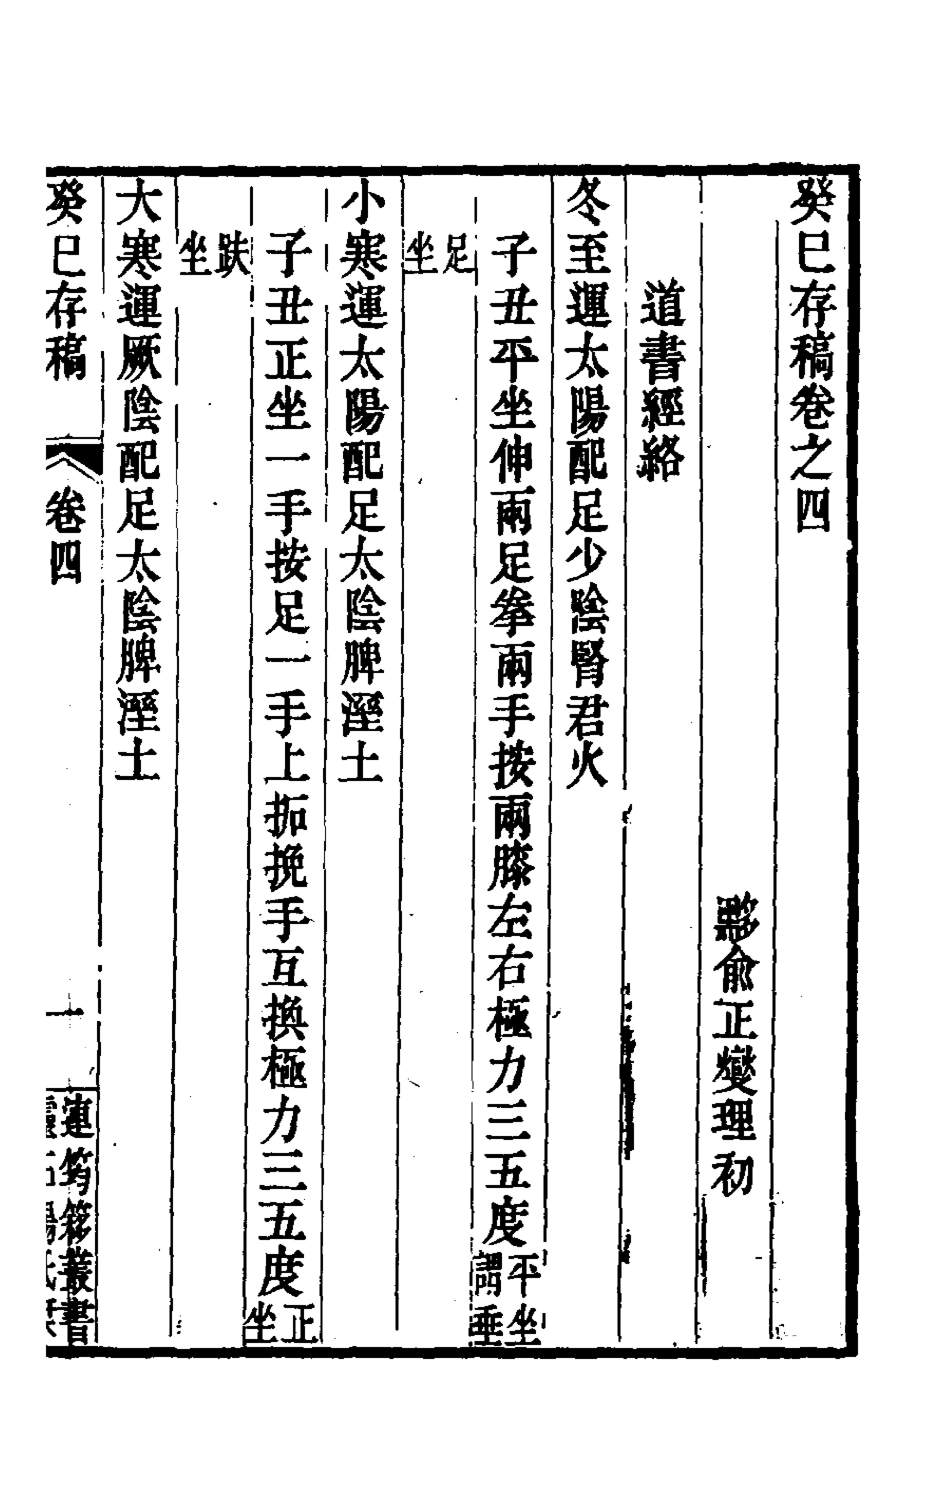 癸巳存稿卷之四
黟俞正燮理初
道書經絡
冬至運太陽配足少陰腎君火
子丑平坐伸兩足拳兩手按兩膝左右極力三五度平坐謂垂
足坐
小寒運太陽配足太陰脾溼土
子丑正坐一手按足一手上拓挽手互換極力三五度正坐
趺坐
大寒運厥陰配足太陰脾溼土
癸巳存稿 卷四 一 連筠簃叢書